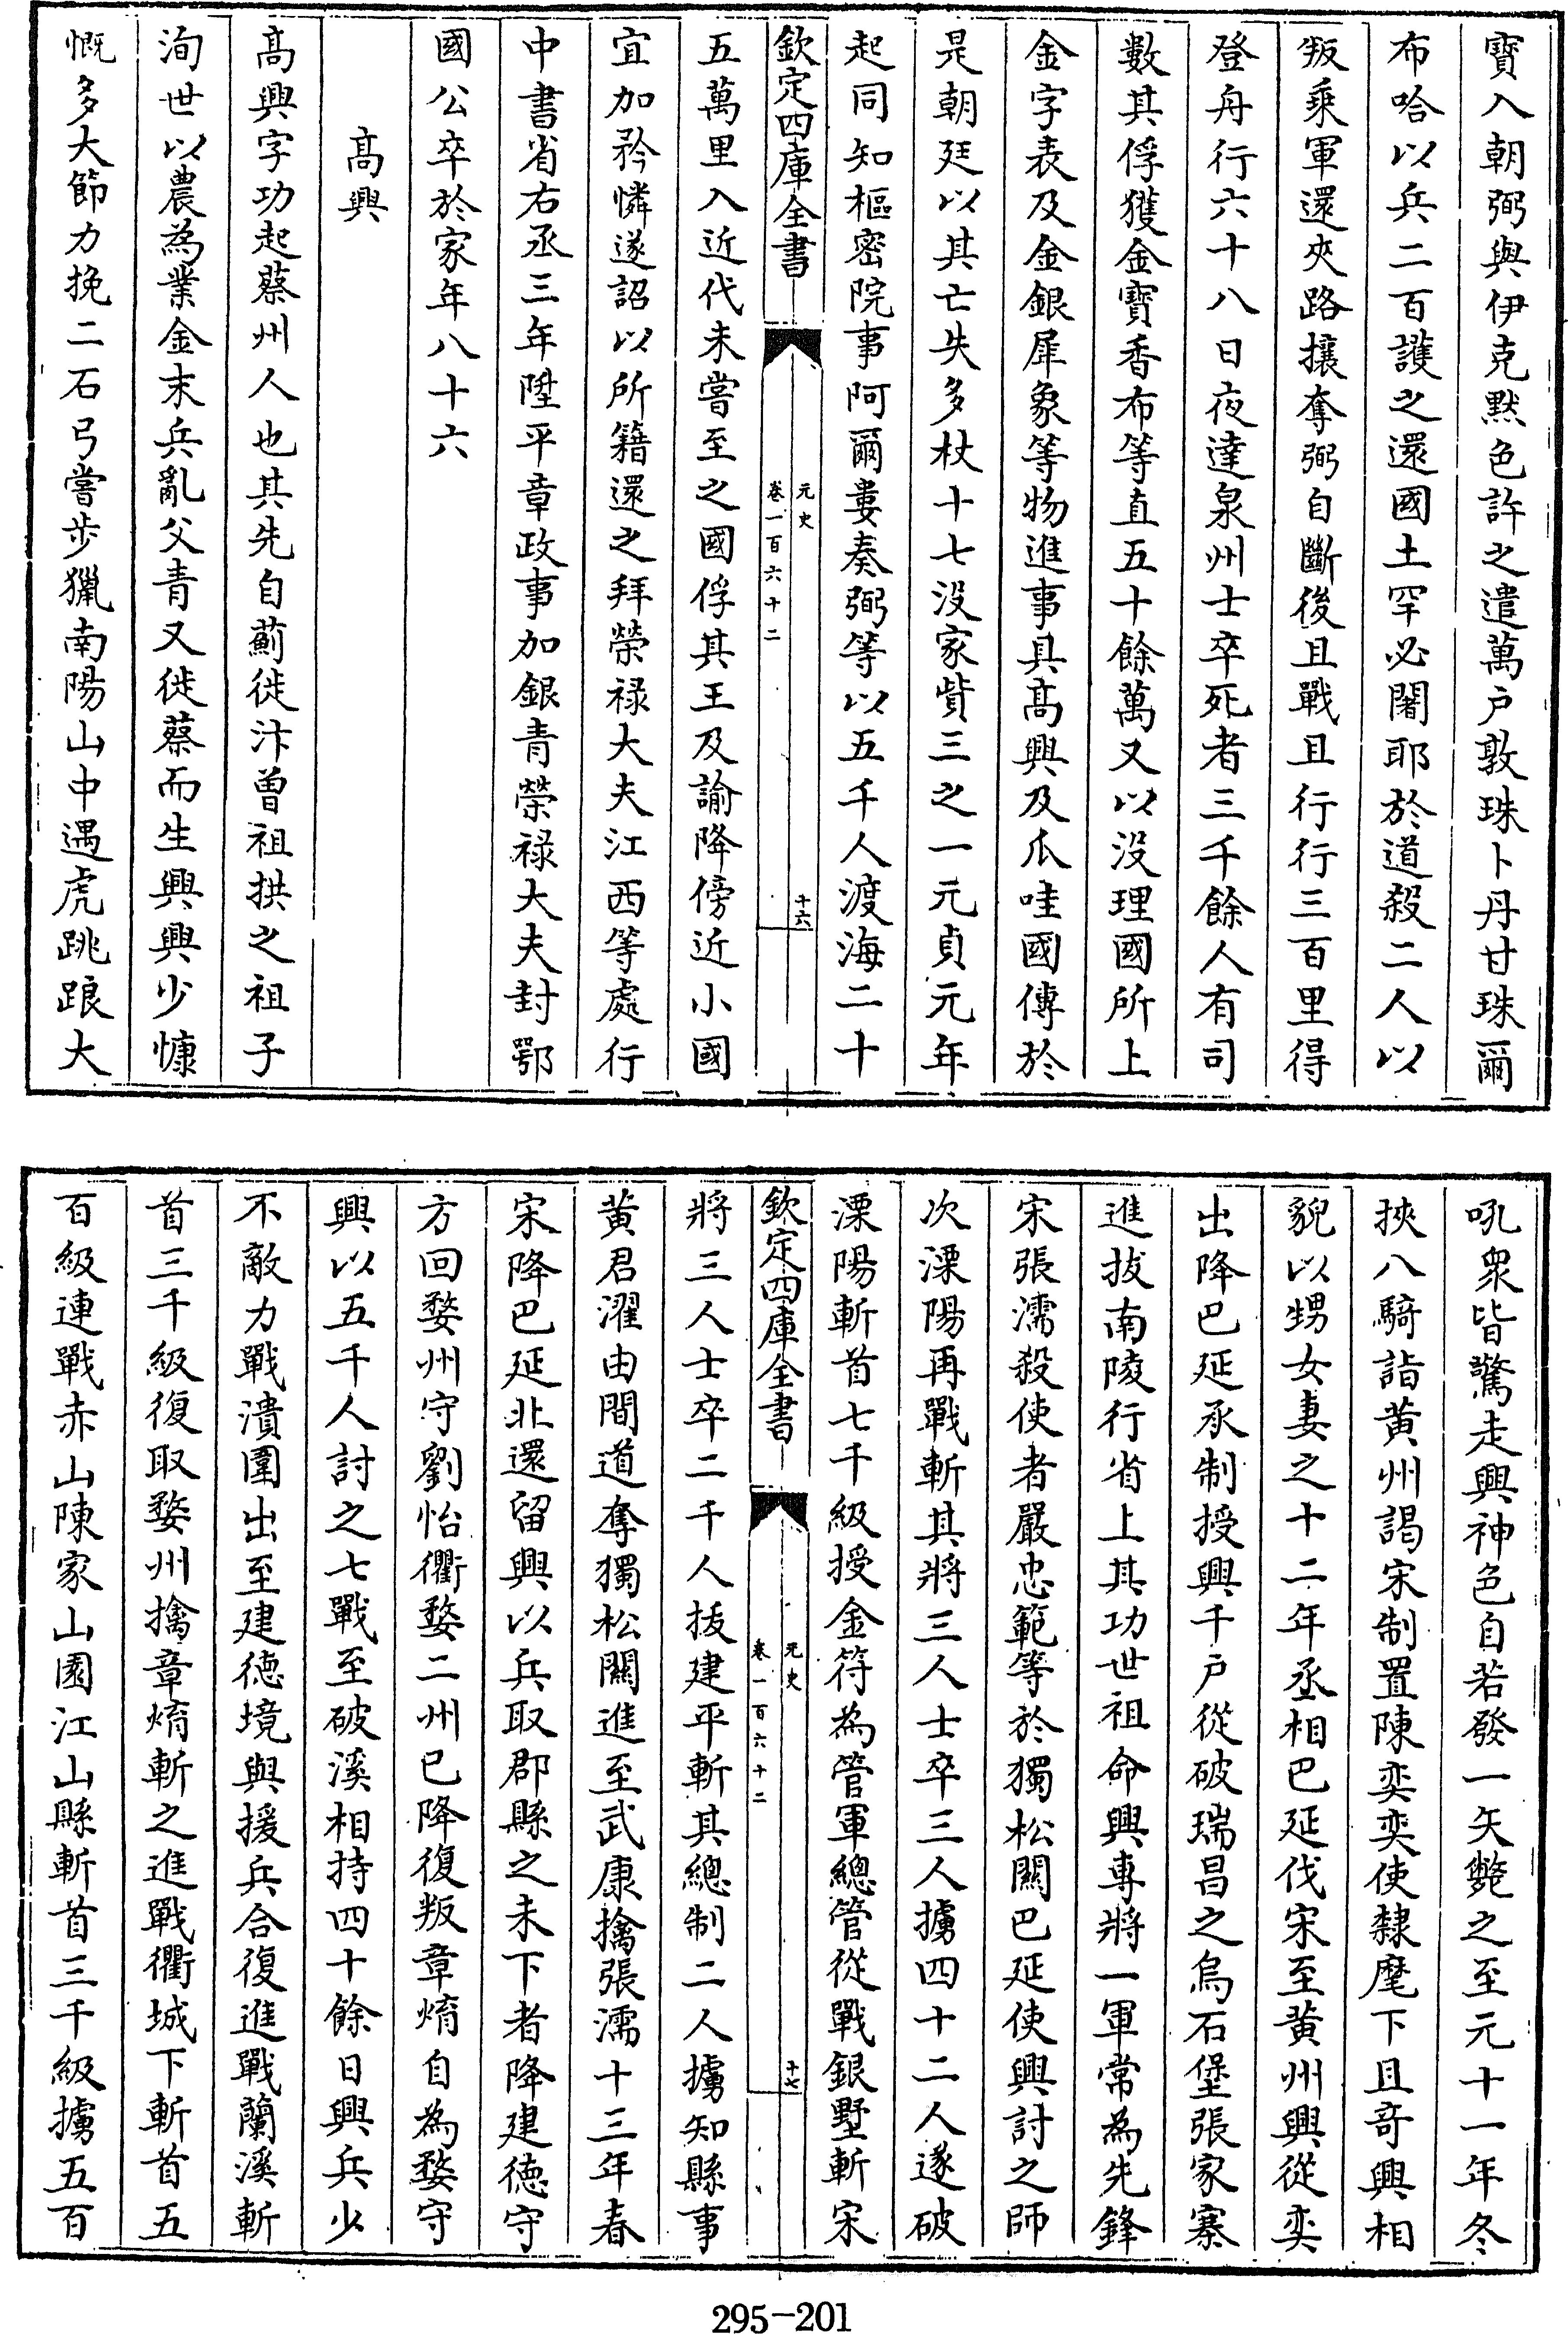 寶入朝弼與伊克黙色許之遣萬户敦珠卜丹甘珠爾
布哈以兵二百護之還國土罕必闍耶於道殺二人以
叛乘軍還夾路攘奪弼自斷後且戰且行行三百里得
登舟行六十八日夜達泉州士卒死者三千餘人有司
數其俘獲金寶香布等直五十餘萬又以沒理國所上
金字表及金銀犀象等物進事具髙興及爪哇國傳於
是朝廷以其亡失多杖十七没家貲三之一元貞元年
起同知樞密院事阿爾婁奏弼等以五千人渡海二十
欽定四庫全書
元史
卷一百六十二
十六
五萬里入近代未嘗至之國俘其王及諭降傍近小國
宜加矜憐遂詔以所籍還之拜榮禄大夫江西等處行
中書省右丞三年陞平章政事加銀青榮禄大夫封鄂
國公卒於家年八十六
髙興
髙興字功起蔡州人也其先自薊徙汴曾祖拱之祖子
洵世以農為業金末兵亂父青又徙蔡而生興興少慷
慨多大節力挽二石弓嘗步獵南陽山中遇虎跳踉大
吼衆皆驚走興神色自若發一矢斃之至元十一年冬
挾八騎詣黄州謁宋制置陳奕奕使隸麾下且奇興相
貌以甥女妻之十二年丞相巴延伐宋至黄州興從奕
出降巴延承制授興千户從破瑞昌之烏石堡張家寨
進拔南陵行省上其功世祖命興専將一軍常為先鋒
宋張濡殺使者嚴忠範等於獨松關巴延使興討之師
次溧陽再戰斬其將三人士卒三人擄四十二人遂破
溧陽斬首七千級授金符為管軍總管從戰銀墅斬宋
欽定四庫全書
元史
卷一百六十二
十七
將三人士卒二千人拔建平斬其總制二人擄知縣事
黄君濯由間道奪獨松關進至武康擒張濡十三年春
宋降巴延北還留興以兵取郡縣之未下者降建徳守
方回婺州守劉怡衢婺二州已降復叛章焴自為婺守
興以五千人討之七戰至破溪相持四十餘日興兵少
不敵力戰潰圍出至建徳境與援兵合復進戰蘭溪斬
首三千級復取婺州擒章焴斬之進戰衢城下斬首五
百級連戰赤山陳家山園江山縣斬首三千級擄五百
295-201